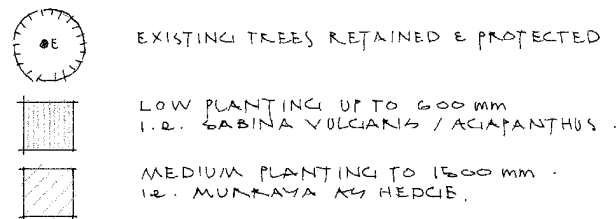 E
EXISTING TREES RETAINED & PROTECTED
LOW PLANTING UP TO 600 mm
i.e. SABINA VULGARIS / AGAPANTHUS.
MEDIUM PLANTING TO 1500 mm.
ie. MURRAYA AS HEDGE.